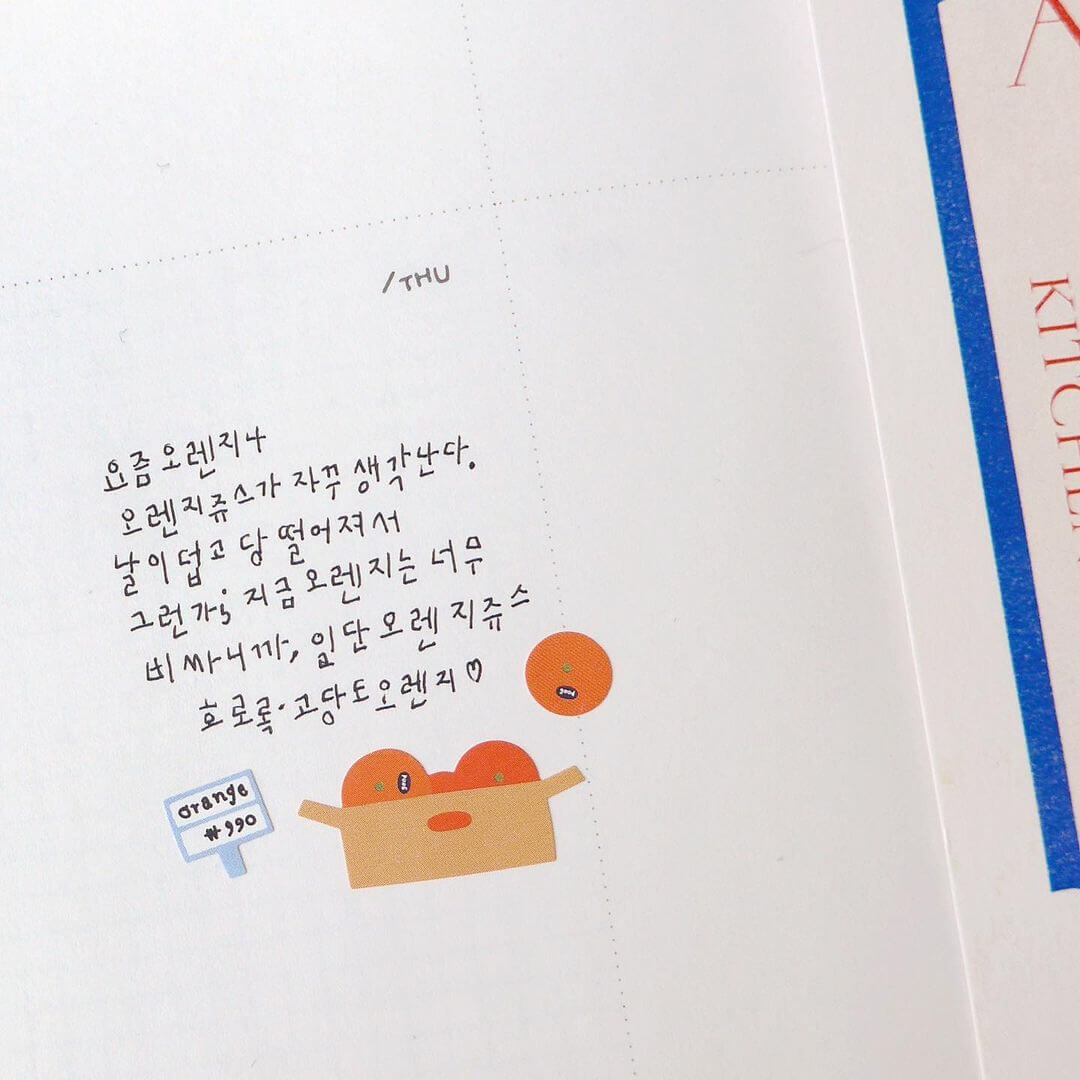 /THU
요즘 오렌지나
오렌지쥬스가 자꾸 생각난다.
날이 덥고 당 떨어져서
그런가; 지금 오렌지는 너무
비싸니까, 일단 오렌지쥬스
호로록. 고당도오렌지♡
orange
₩990
KITCHEN